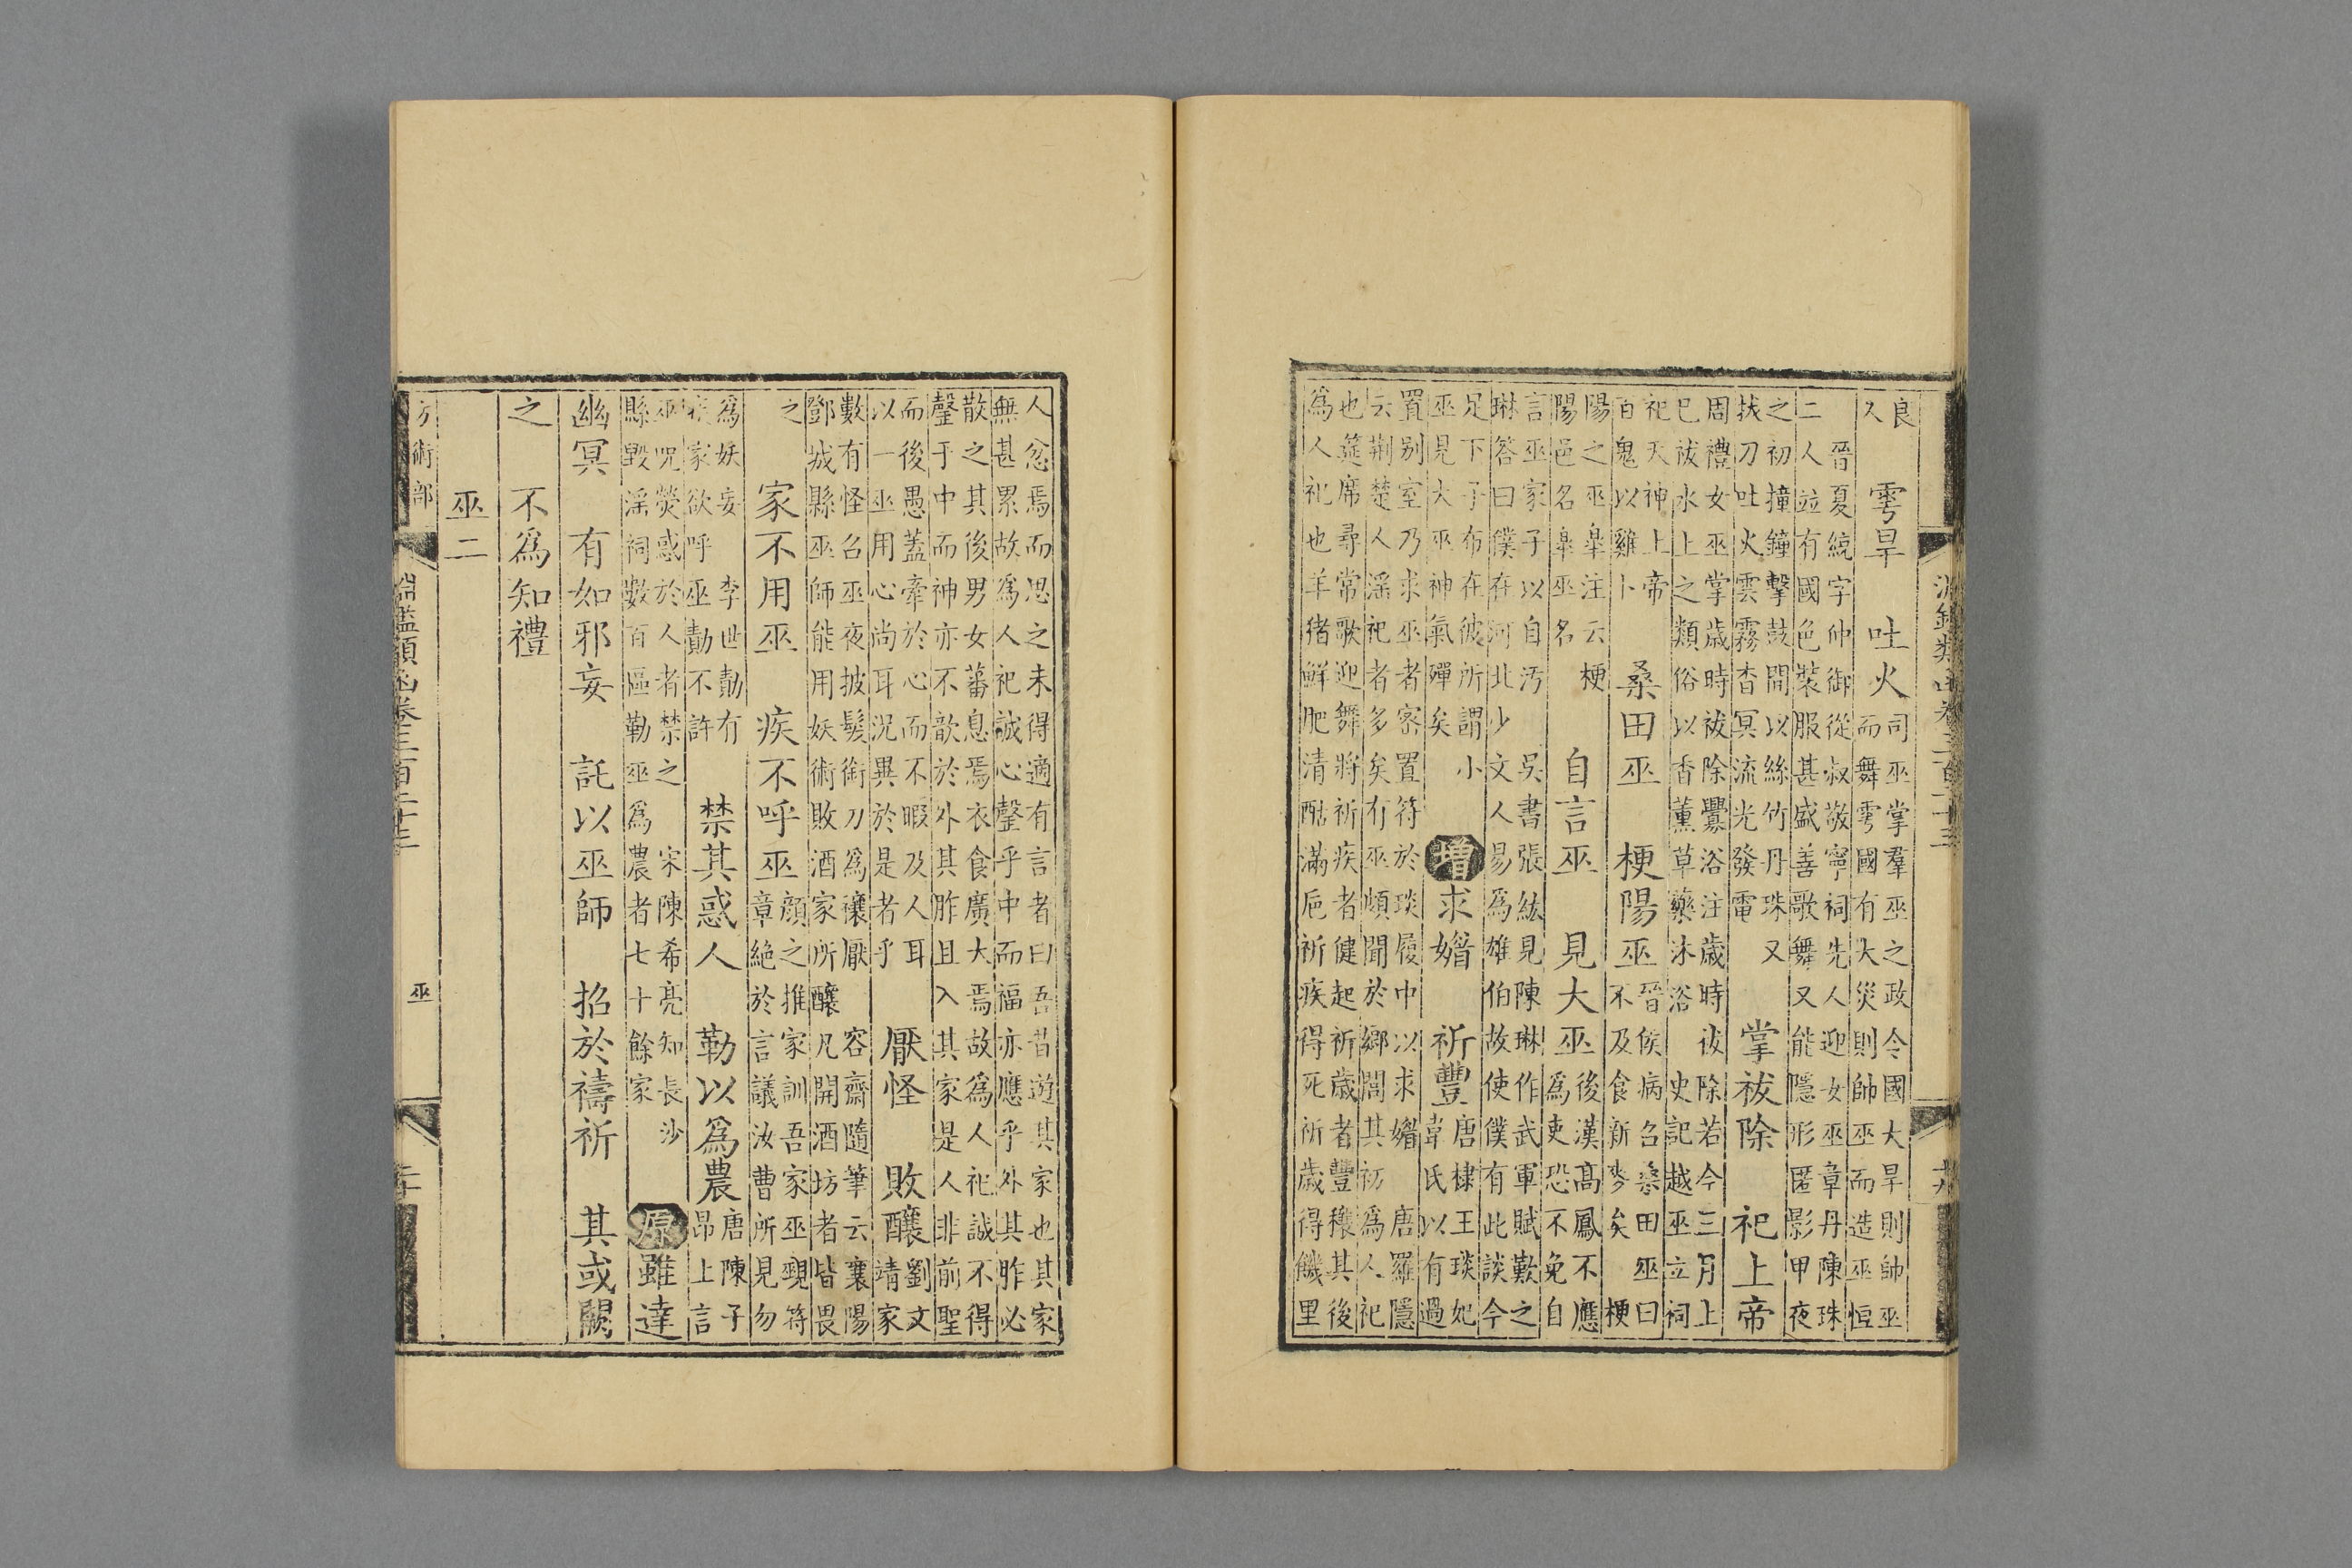 淵鑑類函卷三百二十三
十九
良
久
雩旱　吐火
司巫掌羣巫之政令國大旱則帥巫
而舞雩國有大災則帥巫而造巫恒
晉夏統字仲御從叔敬寧祠先人迎女巫章丹陳珠
二人竝有國色裝服甚盛善歌舞又能隱形匿影甲夜
之初撞鐘擊鼓間以絲竹丹珠又
拔刀吐火雲霧杳冥流光發電
掌祓除　祀上帝
周禮女巫掌歲時祓除釁浴注歲時祓除若今三月上
巳祓水上之類俗以香薰草藥沐浴　史記越巫立祠
祀天神上帝
百鬼以雞卜
桑田巫　梗陽巫
晉侯病召桑田巫曰
不及食新麥矣　梗
陽之巫皋注云梗
陽邑名皋巫名
自言巫　見大巫
後漢高鳳不應
爲吏恐不免自
言巫家子以自汚　吳書張紘見陳琳作武軍賦歎之
琳答曰僕在河北少文人易爲雄伯故使僕有此談今
足下子布在彼所謂小
巫見大巫神氣殫矣
增　求媚　祈豐
唐棣王琰妃
韋氏以有過
置别室乃求巫者密置符於琰履中以求媚　唐羅隱
云荆楚人淫祀者多矣有巫頗聞於鄉閭其初爲人祀
也筵席尋常歌迎舞將祈疾者健起祈歲者豐穰其後
爲人祀也羊猪鮮肥清酤滿巵祈疾得死祈歲得饑里
人忿焉而思之未得適有言者曰吾昔遊其家也其家
無甚累故爲人祀誠心罄乎中而福亦應乎外其胙必
散之其後男女蕃息焉衣食廣大焉故爲人祀誠不得
罄于中而神亦不歆於外其胙且入其家是人非前聖
而後愚蓋牽於心而不暇及人耳
以一巫用心尚耳況異於是者乎
厭怪　敗釀
劉文
靖家
數有怪召巫夜披髮銜刀爲禳厭　容齋隨筆云襄陽
鄧城縣巫師能用妖術敗酒家所釀凡開酒坊者皆畏
之
家不用巫　疾不呼巫
顔之推家訓吾家巫覡符
章絶於言議汝曹所見勿
爲妖妄　李世勣有
疾家欲呼巫勣不許
禁其惑人　勒以爲農
唐陳子
昂上言
巫咒熒惑於人者禁之　宋陳希亮知長沙
縣毁淫祠數百區勒巫爲農者七十餘家
原　雖達
幽冥　有如邪妄　託以巫師　招於禱祈　其或闕
之　不爲知禮
巫二
方術部
淵鑑類函卷三百二十三
巫
二十